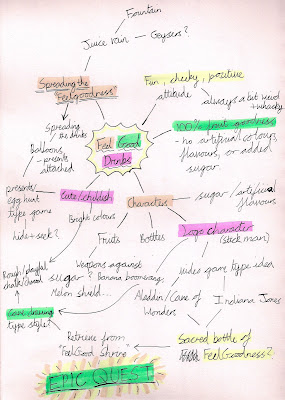 Fountain
Juice rain
Geysers?
Spreading the
"Feelgoodness"
Fun, cheeky, positive
attitude
always a bit weird
+ whacky
Spreading
the drinks
Balloons,
- presents
attached
Feel Good
Drinks
100% fruit goodness
- no artificial colours,
flavours, or added
sugar
presents/
egg hunt
type game
hide + seek?
Cute/childish
Bright colours
Characters
sugar/artificial
flavours
Fruits
Bottles
Logo character
(stick man)
Rough/playful
chalk/
Game/drawing
type style?
Weapons against
sugar? Banana boomerang,
Melon shield...
video game type idea
Aladdin/Cave of
Wonders
Indiana Jones
Retrieve from
"FeelGood Shrine"
Sacred bottle of
FeelGoodness?
EPIC QUEST